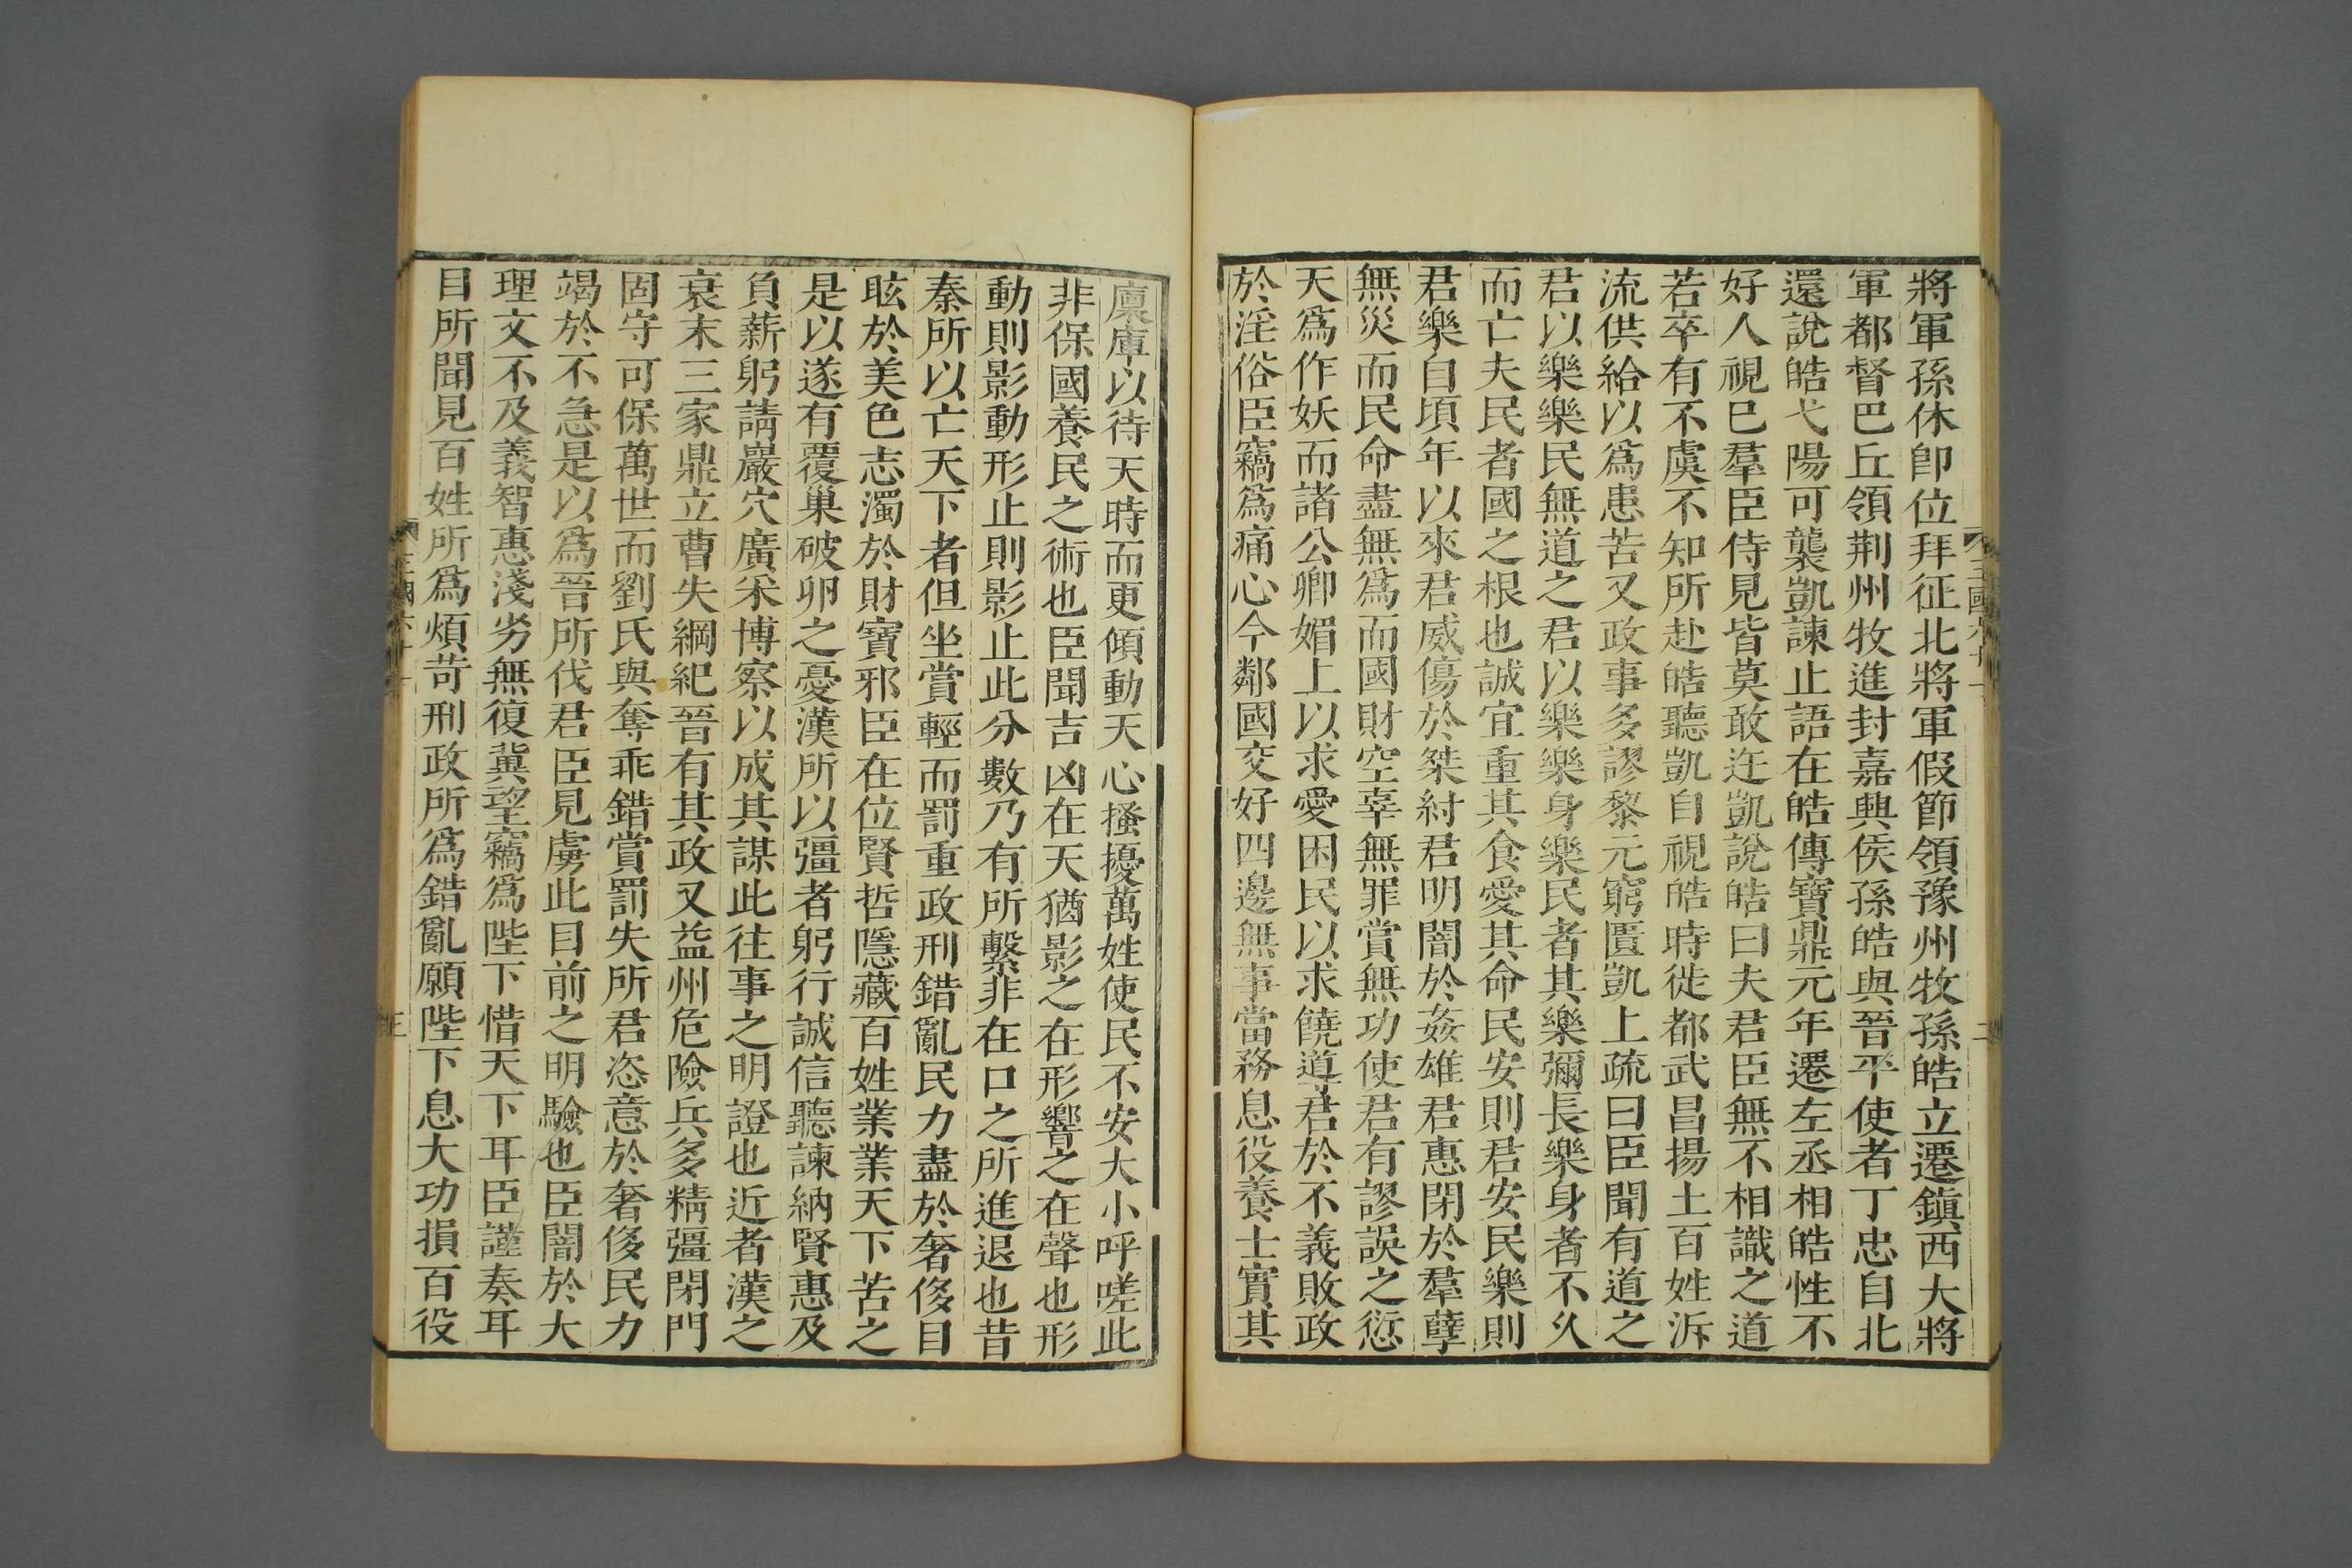 將軍孫休卽位拜征北將軍假節領豫州牧孫皓立遷鎭西大將
軍都督巴丘領荆州牧進封嘉興侯孫皓與晉平使者丁忠自北
還說皓弋陽可襲凱諫止語在皓傳寶鼎元年遷左丞相皓性不
好人視巳羣臣侍見皆莫敢迕凱說皓曰夫君臣無不相識之道
若卒有不虞不知所赴皓聽凱自視皓時徙都武昌揚土百姓泝
流供給以爲患苦又政事多謬黎元窮匱凱上疏曰臣聞有道之
君以樂樂民無道之君以樂樂身樂民者其樂彌長樂身者不久
而亡夫民者國之根也誠宜重其食愛其命民安則君安民樂則
君樂自頃年以來君威傷於桀紂君明闇於姦雄君惠閉於羣孽
無災而民命盡無爲而國財空辜無罪賞無功使君有謬誤之愆
天爲作妖而諸公卿媚上以求愛困民以求饒道君於不義敗政
於淫俗臣竊爲痛心今鄰國交好四邊無事當務息役養士實其
廪庫以待天時而更傾動天心搔擾萬姓使民不安大小呼嗟此
非保國養民之術也臣聞吉凶在天猶影之在形響之在聲也形
動則影動形止則影止此分數乃有所繫非在口之所進退也昔
秦所以亡天下者但坐賞輕而罰重政刑錯亂民力盡於奢侈目
眩於美色志濁於財寶邪臣在位賢哲隱藏百姓業業天下苦之
是以遂有覆巢破卵之憂漢所以彊者躬行誠信聽諫納賢惠及
負薪躬請巖穴廣采博察以成其謀此往事之明證也近者漢之
衰末三家鼎立曹失綱紀晉有其政又益州危險兵多精彊閉門
固守可保萬世而劉氏與奪乖錯賞罰失所君恣意於奢侈民力
竭於不急是以爲晉所伐君臣見虜此目前之明驗也臣闇於大
理文不及義智惠淺劣無復冀望竊爲陛下惜天下耳臣謹奏耳
目所聞見百姓所爲煩苛刑政所爲錯亂願陛下息大功損百役